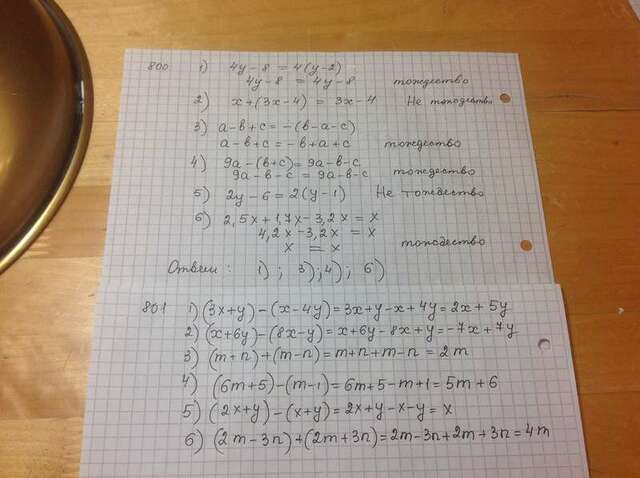 800 1) 4y - 8 = 4(y-2)
4y - 8 = 4y - 8 тождество
2) x + (3x - 4) = 3x - 4 Не тождество
3) a - b + c = -(b - a - c)
a - b + c = -b + a + c тождество
4) 9a - (b + c) = 9a - b - c
9a - b - c = 9a - b - c тождество
5) 2y - 6 = 2(y - 1) Не тождество
6) 2,5x + 1,7x - 3,2x = x
4,2x - 3,2x = x
x = x тождество
Ответ: 1); 3); 4); 6)
801 1) (3x+y) - (x - 4y) = 3x + y - x + 4y = 2x + 5y
2) (x+6y) - (8x - y) = x + 6y - 8x + y = -7x + 7y
3) (m+n) + (m-n) = m + n + m - n = 2m
4) (6m+5) - (m-1) = 6m + 5 - m + 1 = 5m + 6
5) (2x+y) - (x+y) = 2x + y - x - y = x
6) (2m - 3n) + (2m + 3n) = 2m - 3n + 2m + 3n = 4m